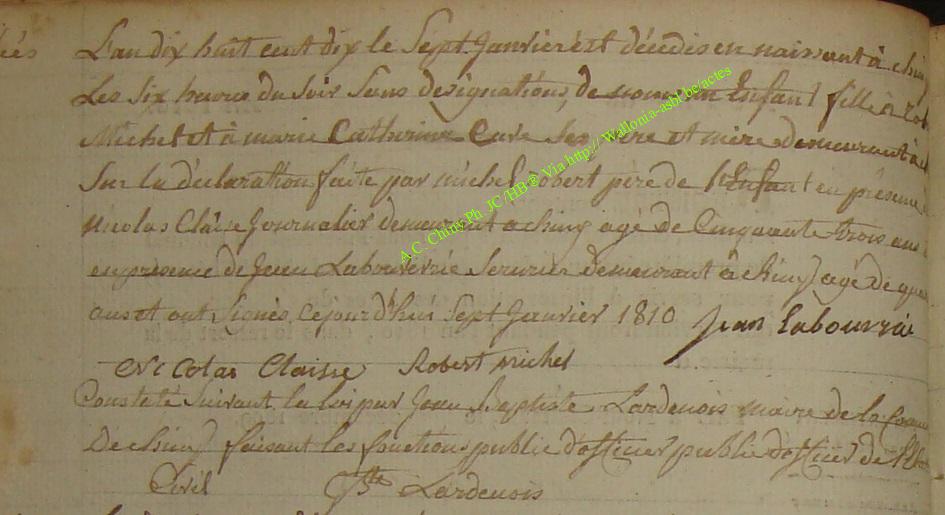 L'an dix huit cent dix le Sept Janvier est décédés en naissant à chiny
Les six heures du Soir Sans désignations, de nom un Enfant fille à Rob
Michel et à marie Catherine Cure Ses pere et mère demeurant à
Sur la déclaration faite par michel Robert père de l'Enfant en présence
Nicolas Claise Journalier demeurant a chiny agé de Cinquante trois ans
en présence de Jean Labouverie Serurier demeurant à chiny agé de qua
ans et ont Signés Cejourd'hui Sept Janvier 1810 Jean Labouvrie
Nicolas Claisse Robert michel
Constaté Suivant la loi par Jean Baptiste Lardenois maire de la Comm
De chiny faisant les fonctions public d'officier public d'officier de l'Etat
Civil JBte Lardenois
A.C. Chiny.Ph JC /HB ® Via http:// Wallonia-asbl be/actes